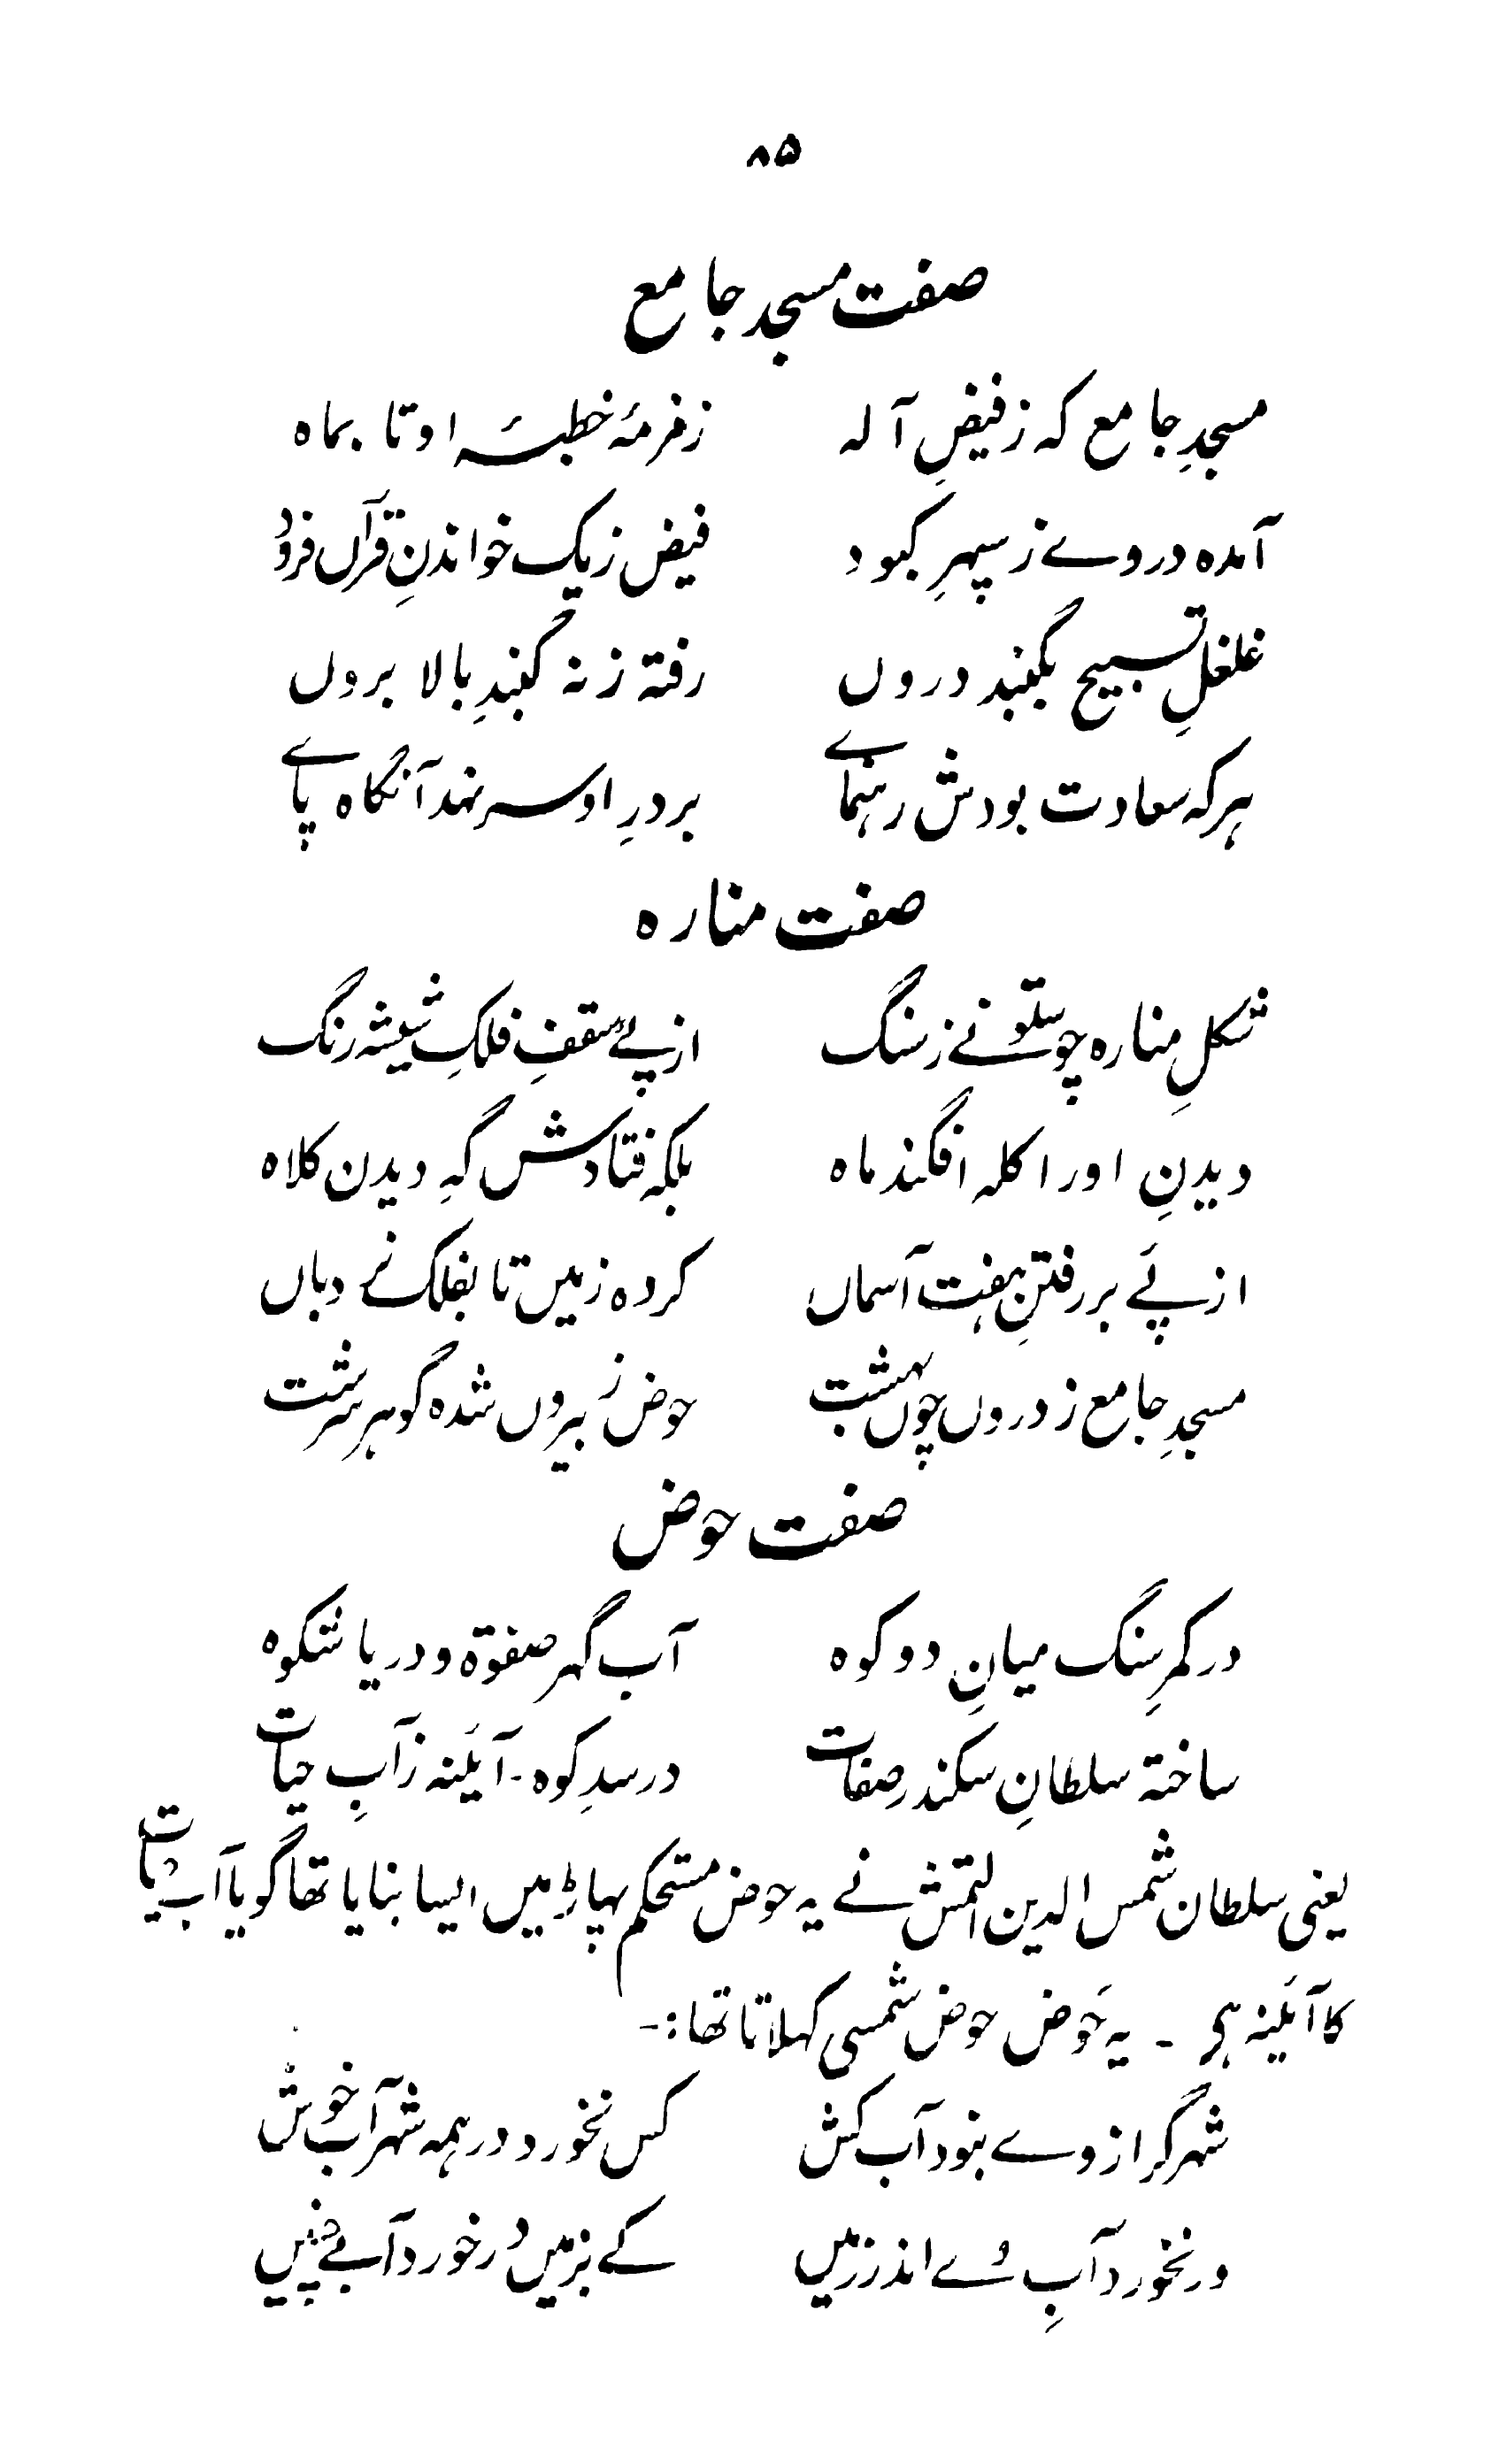 ۸۵
صفت مسجد جامع
مسجدِ جامع که ز فیضِ آله زمزمۂ خطبۂ او تا بماه
آمده در وے ز سپہرِ کبود فیض ز یک خواندنِ قرآں فرود
غلغلِ تسبیح بگنبد دروں رفتہ ز نہ گنبدِ بالا بروں
ہر کہ سعادت بودش رہنمائے بر درِ او سر نہد آنگاہ پائے
صفت منارہ
شکلِ منارہ چو ستونے ز سنگ از پے سقفِ فلکِ شیشہ رنگ
دیدنِ او را کلہ افگند ماہ بلکہ فتادش گہِ دیدن کلاہ
از پَے بر رفتنِ ہفت آسماں کردہ زمیں تا بفلک نردباں
مسجدِ جامع ز دروں چوں بہشت حوض ز بیروں شدہ گوہر سرشت
صفت حوض
در کمرِ سنگ میانِ دو کوہ آب گہر صفوۃ و دریا شکوہ
ساختہ سلطانِ سکندر صفات در سدِ کوہ۔ آئینہ ز آبِ حیات
یعنی سلطان شمس الدین التمش نے یہ حوض مستحکم پہاڑ میں ایسا بنایا تھا گویا آب حیات
کا آئینہ ہی ۔ یہ حوض حوض شمسی کہلاتا تھا :۔
شہر گر از وے نبود آب کش کس نخورد در ہمہ شہر آب خوش
ور نخورد آبِ وے اندر زمیں کے بزمیں در خورد آبے چنیں